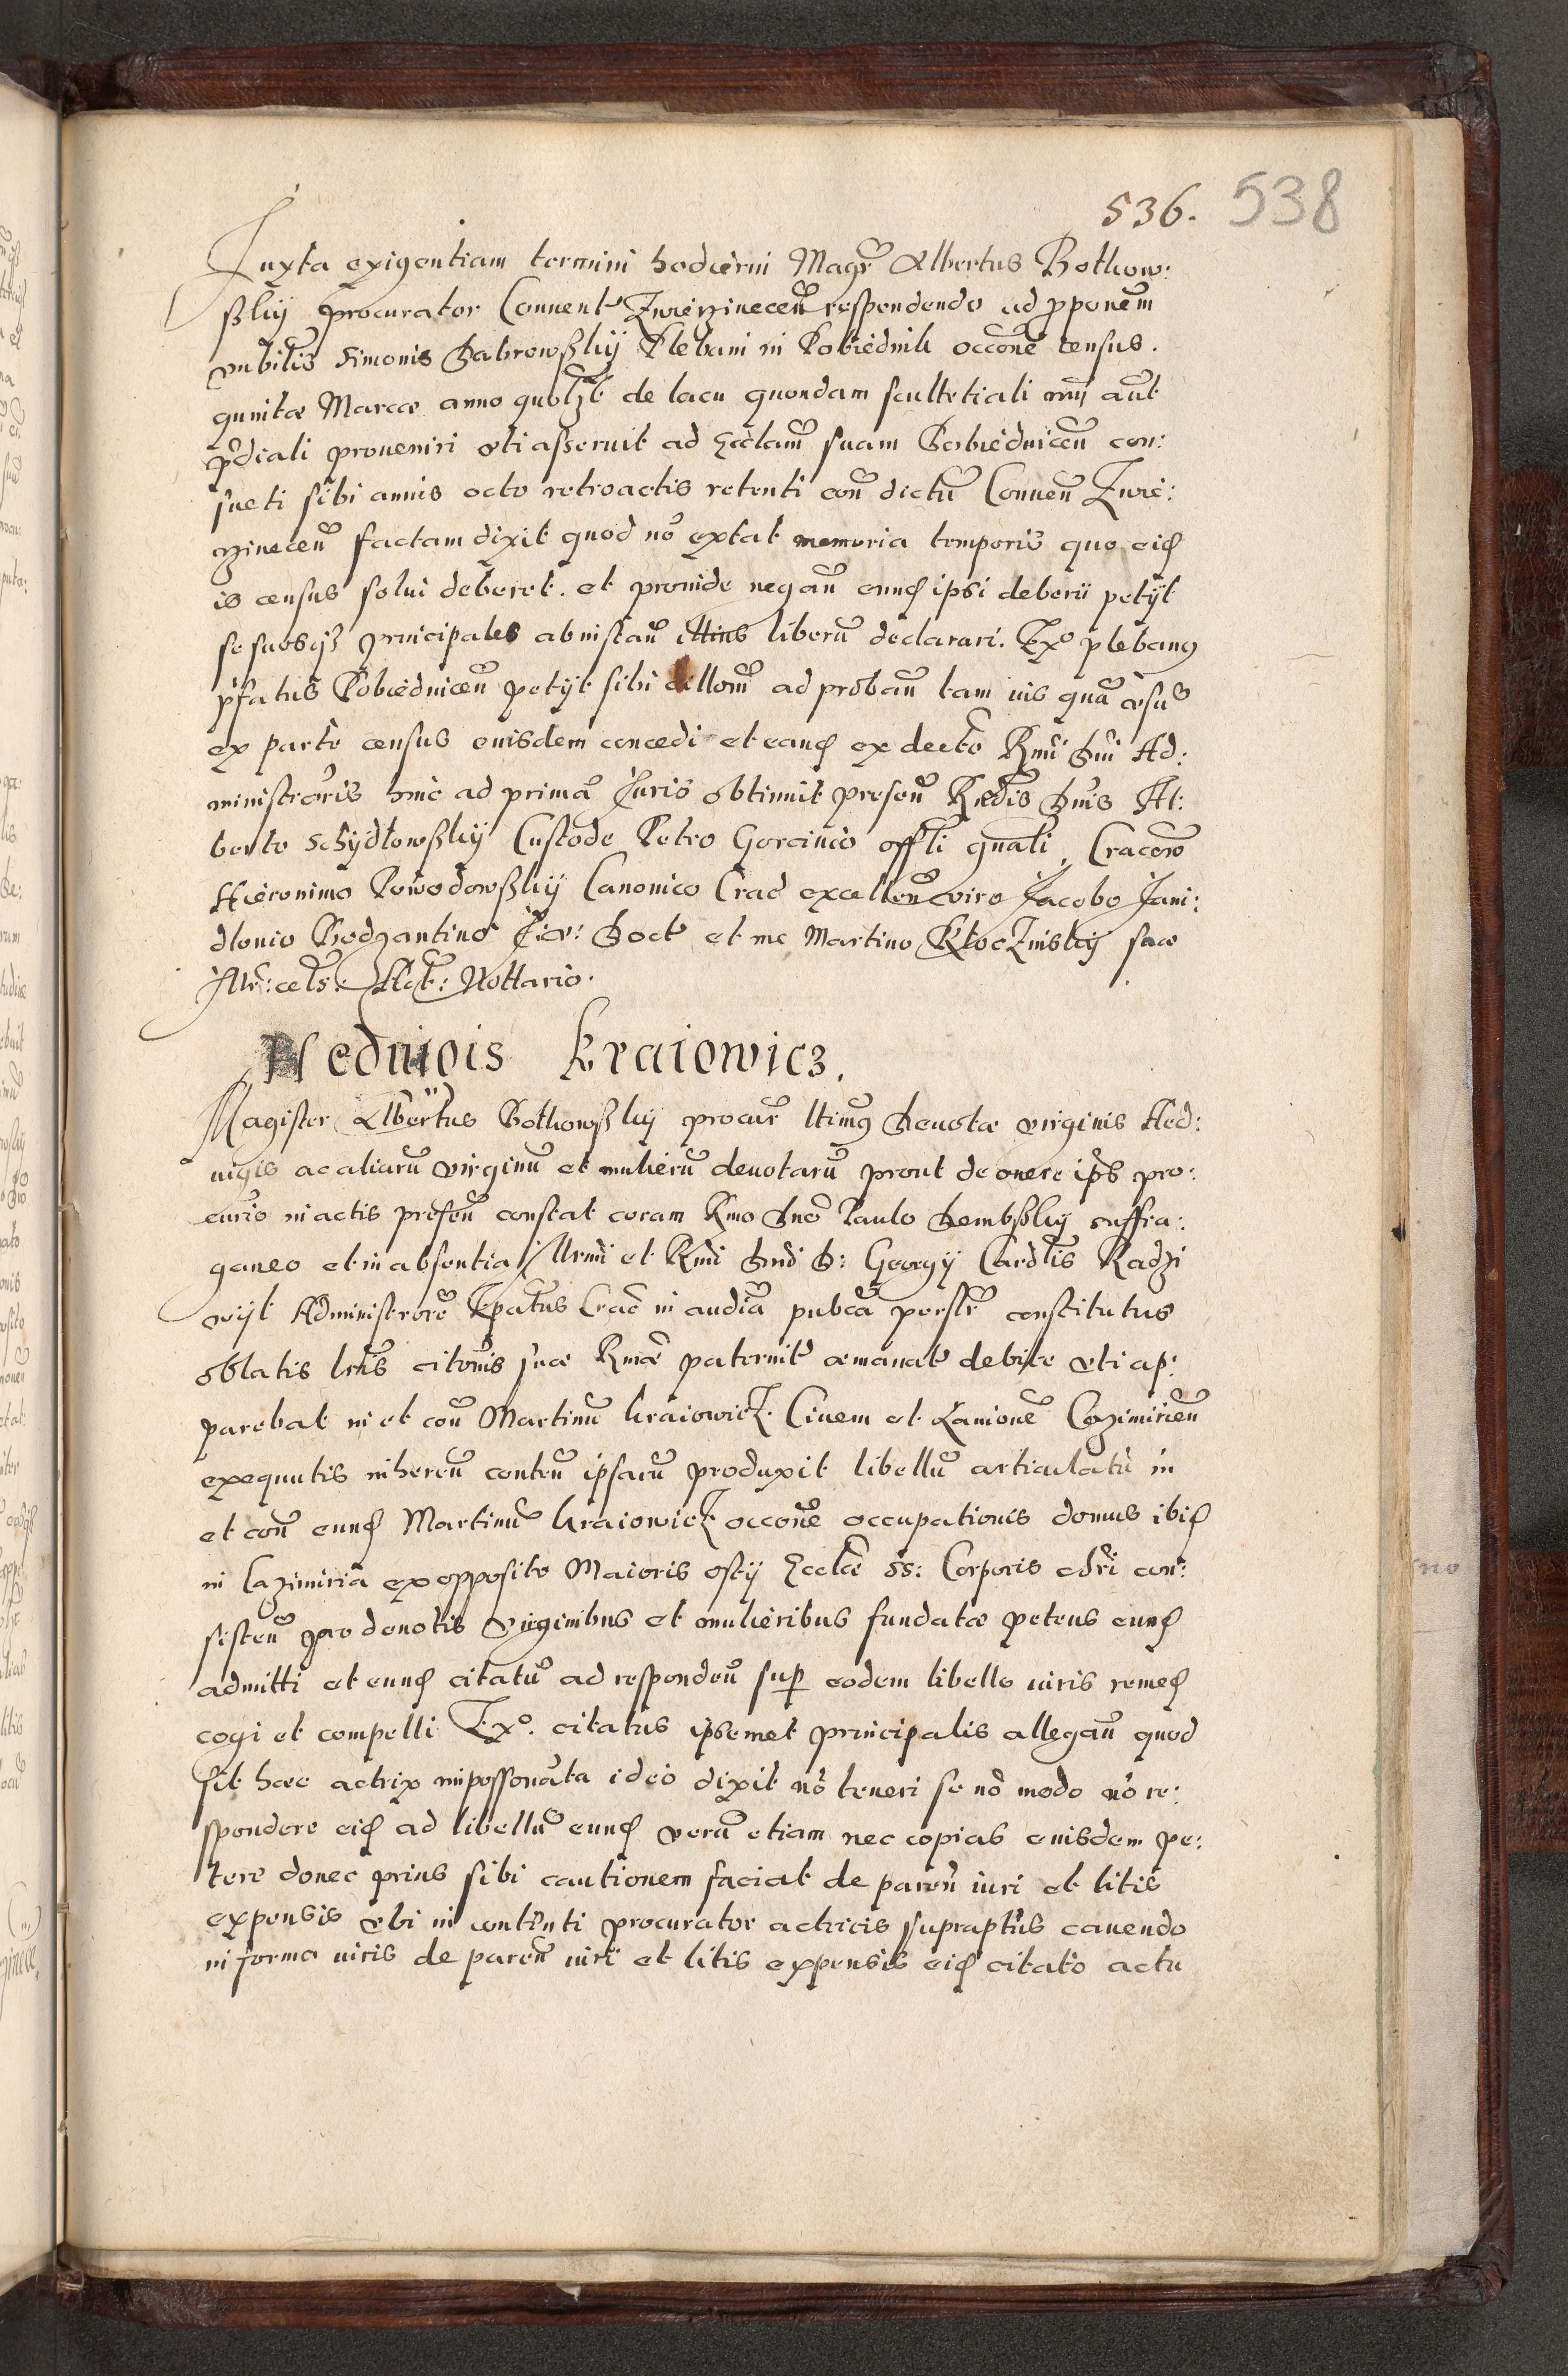 536. 538
Juxta exigentiam termini hodierni Magr Albertus Bothow:
ßkij procurator Conuent Zwierzinecen respondendo ad pponem
nobilis Simonis Dabrowßkij Plebani in Pobiednik occone census.
quintae Marcae anno quolzt de lacu quondam scultetiali nunc aut
pdiali proueniri uti asseruit ad Ecclam suam Pobiednicen con:
sueti sibi annis octo retroactis retenti con dictu Conuen Zwie:
rzinecen factam dixit quod no extat memoria temporis quo eid
is census solui deberet. et proinde negan eund ipsi deberi petijt
se suosq principales ab instan illius liberu declarari. Exo plebang
pfatus Pobiednicen petijt sibi dillom ad proban tam iuris qua cesus
ex parte census euisdem concedi et eand ex decto Rmi Dni Ad:
ministroris hinc ad prima Juris obtinuit presen Rndis Dnis Al:
berto Schydlowßkij Custode Petro Gorcinio offli gnali, Cracow
Hieronimo Powodowßkij Canonico Crac excellen viro Jacobo Jani:
dlonio Bodzantino J. v: Doct et me Martino Kloczinskij sacr
Attr: cels: Act: Nottario.
Heduigis Kraiowicz.
Magister Albertus Bothowßkij procur ltimg Deuotae virginis Hed:
uigis ac aliaru virginu et mulieru deuotaru prout de onere ips pro:
curio in actis presen constat coram Rmo Dno Paulo Dembßkij suffra:
ganeo et in absentia Illrmi et Rmi Dnd D: Georgij Cardlis Radzi
wijl Administrore Epatus Crac in audia pubca perslr constitutus
oblatis lris citonis suae Rmae paternit aemanat debite uti ap:
parebat in et con Martinu Kraiowicz Ciuem et Lanione Cazimirien
exequutis inheren conten ipsaru produxit libellu articulatu in
et con eund Martinu Kraiowicz occone occupationis domus ibid
in Cazimiria ex opposito Maioris ostij Ecclae SS: Corporis chri con:
sisten pro deuotis Virginibus et mulieribus fundatae petens eund
admitti et eund citatu ad responden sup eodem libello iuris remed
cogi et compelli Exo. citatus ipsemet principalis allegan quod
sit haec actrix impossonata ideo dixit no teneri se no modo no re:
spondere eid ad libellu eund veru etiam nec copias euisdem pe:
tere donec prius sibi cautionem faciat de paren iuri et litis
expensis ubi in continti procurator actricis supraptus cauendo
in forma iuris de paren iuri et litis expensis eid citato actu